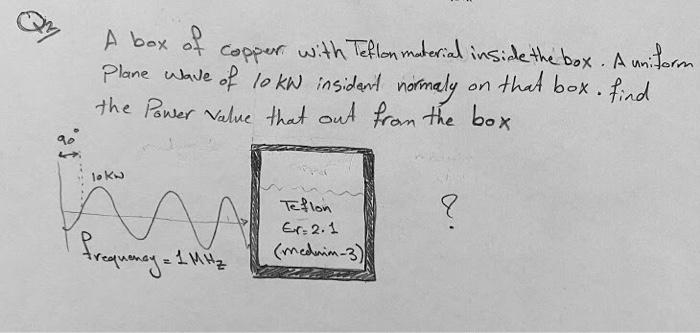 Q2
A box of copper with Teflon material inside the box. A uniform
Plane wave of 10 kW insident normaly on that box. find
the Power value that out from the box
90°
10 kW
Teflon
Er= 2.1
(medium-3)
?
frequency = 1 MHz